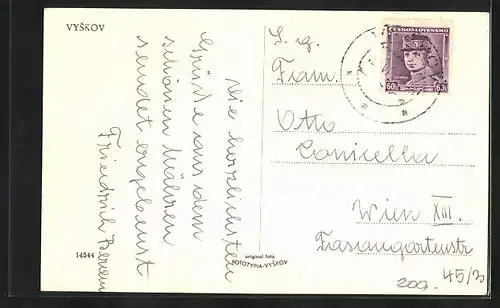 VYŠKOV
Die herzlichsten
Grüße aus dem
schönen Mähren
sendet ergebenst
Friedrich
14544
original foto
FOTOTYPIA-VYŠKOV
ČESKOSLOVENSKO
60 60
S. g.
Fam.
Otto
Conicella
Wien XIII.
Fasangartenstr
45/3
200.